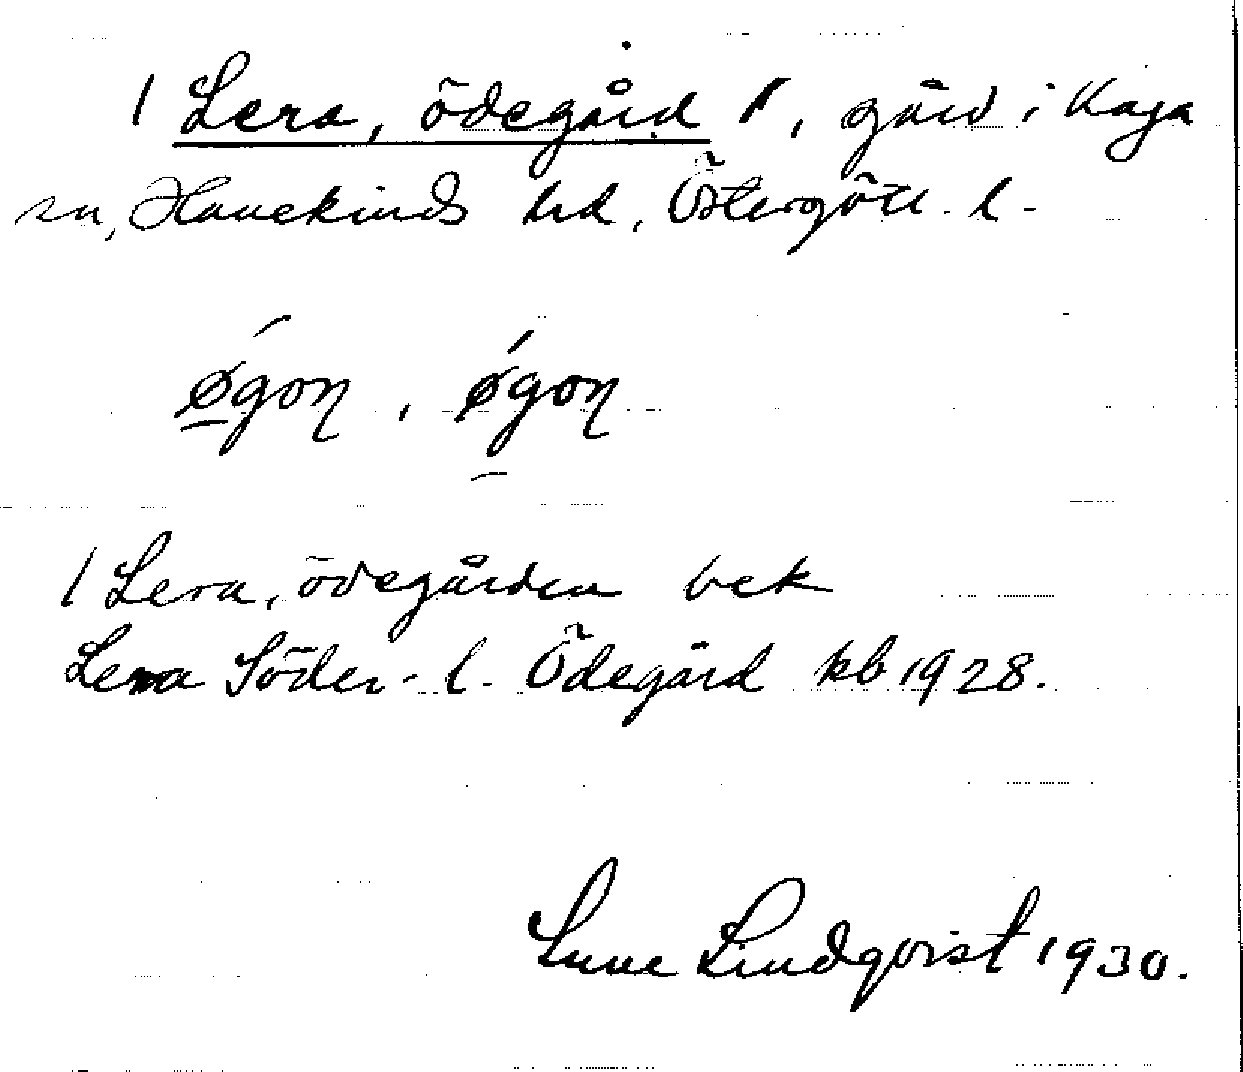 1 Lera, ödegård 1, gård i Kaga
sn, Hanekinds hd, Östergötl. l.
ǿgoƞ, ǿgoƞ
1 Lera, ödegården bek
Lera Söder- l. Ödegård kb 1928.
Sune Lindqvist 1930.